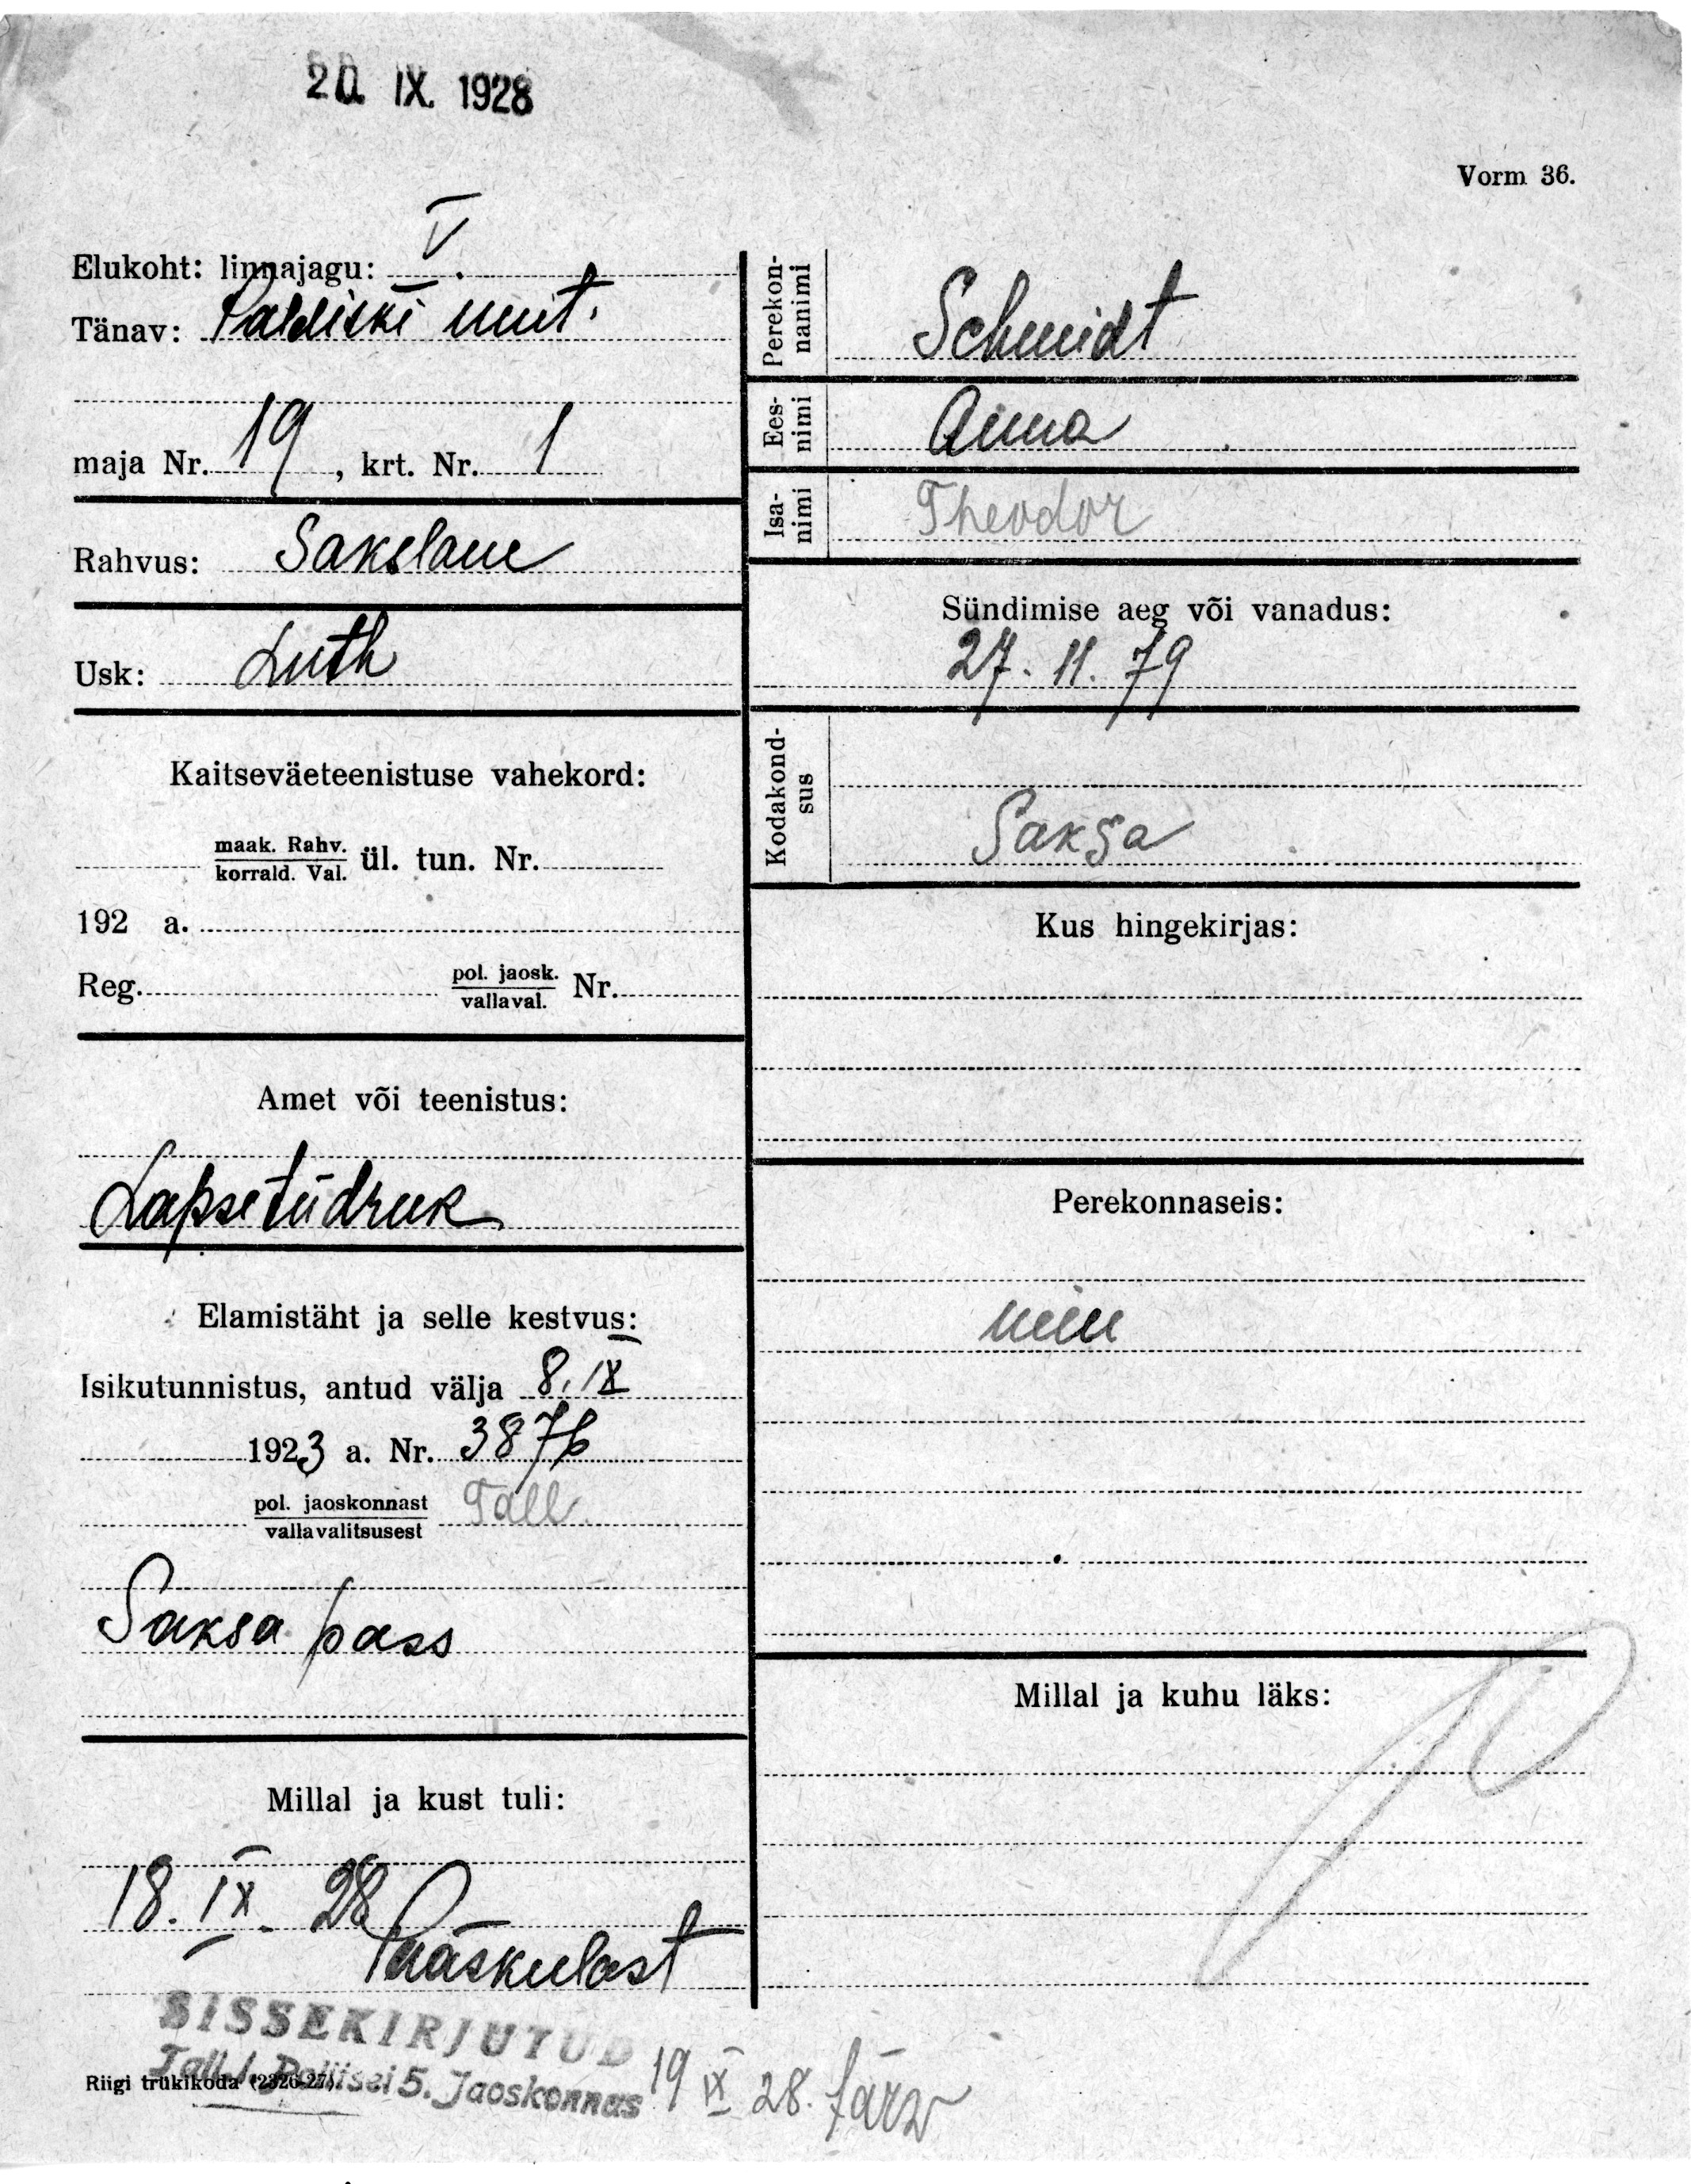 20. IX. 1928
Vorm 36.
Elukoht: linnajagu: V.
Tänav: Paldiski mnt.
maja Nr. 19, krt. Nr. 1
Rahvus: Sakslane
Usk: Luth
Kaitseväeteenistuse vahekord:
maak. Rahv.
korrald. Val. ül. tun. Nr.
192 a.
Reg. pol. jaosk.
vallaval. Nr.
Amet või teenistus:
Lapsetüdruk
Elamistäht ja selle kestvus:
Isikutunnistus, antud välja 8. IX
1923 a. Nr. 3876
pol. jaoskonnast
vallavalitsusest Tall.
Saksa pass
Millal ja kust tuli:
18. IX. 28
Pääskülast
Perekon-
nanimi Schmidt
Ees-
nimi Anna
Isa-
nimi Theodor
Sündimise aeg või vanadus:
27. 11. 79
Kodakond-
sus Saksa
Kus hingekirjas:
Perekonnaseis:
Millal ja kuhu läks:
SISSEKIRJUTUD
Tall. l. Politsei 5. Jaoskonnas 19 IX 28.
Riigi trükikoda (2326-27)